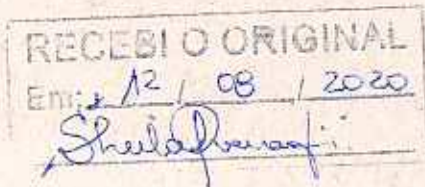 RECEBI O ORIGINAL
Em: 12 / 08 / 2020